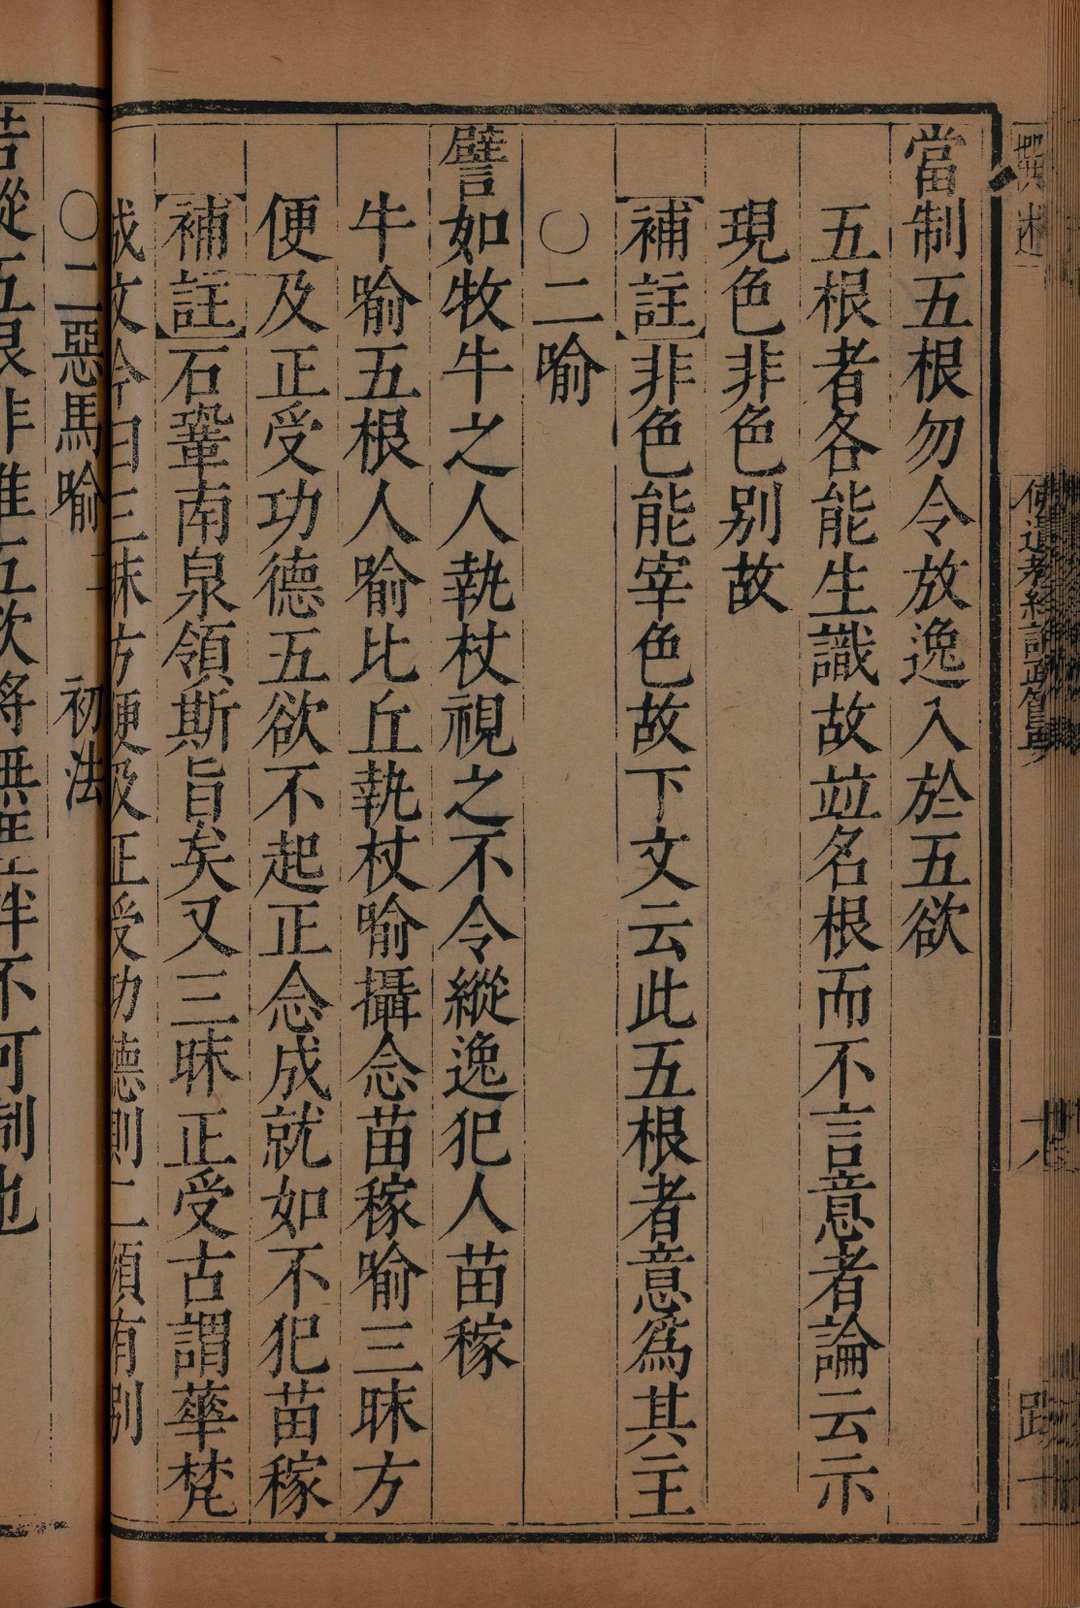 當制五根勿令放逸入於五欲
五根者各能生識故竝名根而不言意者論云示
現色非色別故
【補註】非色能宰色故下文云此五根者意爲其主
○二喻
譬如牧牛之人執杖視之不令縱逸犯人苗稼
牛喻五根人喻比丘執杖喻攝念苗稼喻三昧方
便及正受功德五欲不起正念成就如不犯苗稼
【補註】石鞏南泉領斯旨矣又三昧正受古謂華梵
成文今曰三昧方便及正受功德則二須有別
○二惡馬喻二 初法
若縱五根非唯五欲將無崖畔不可制也